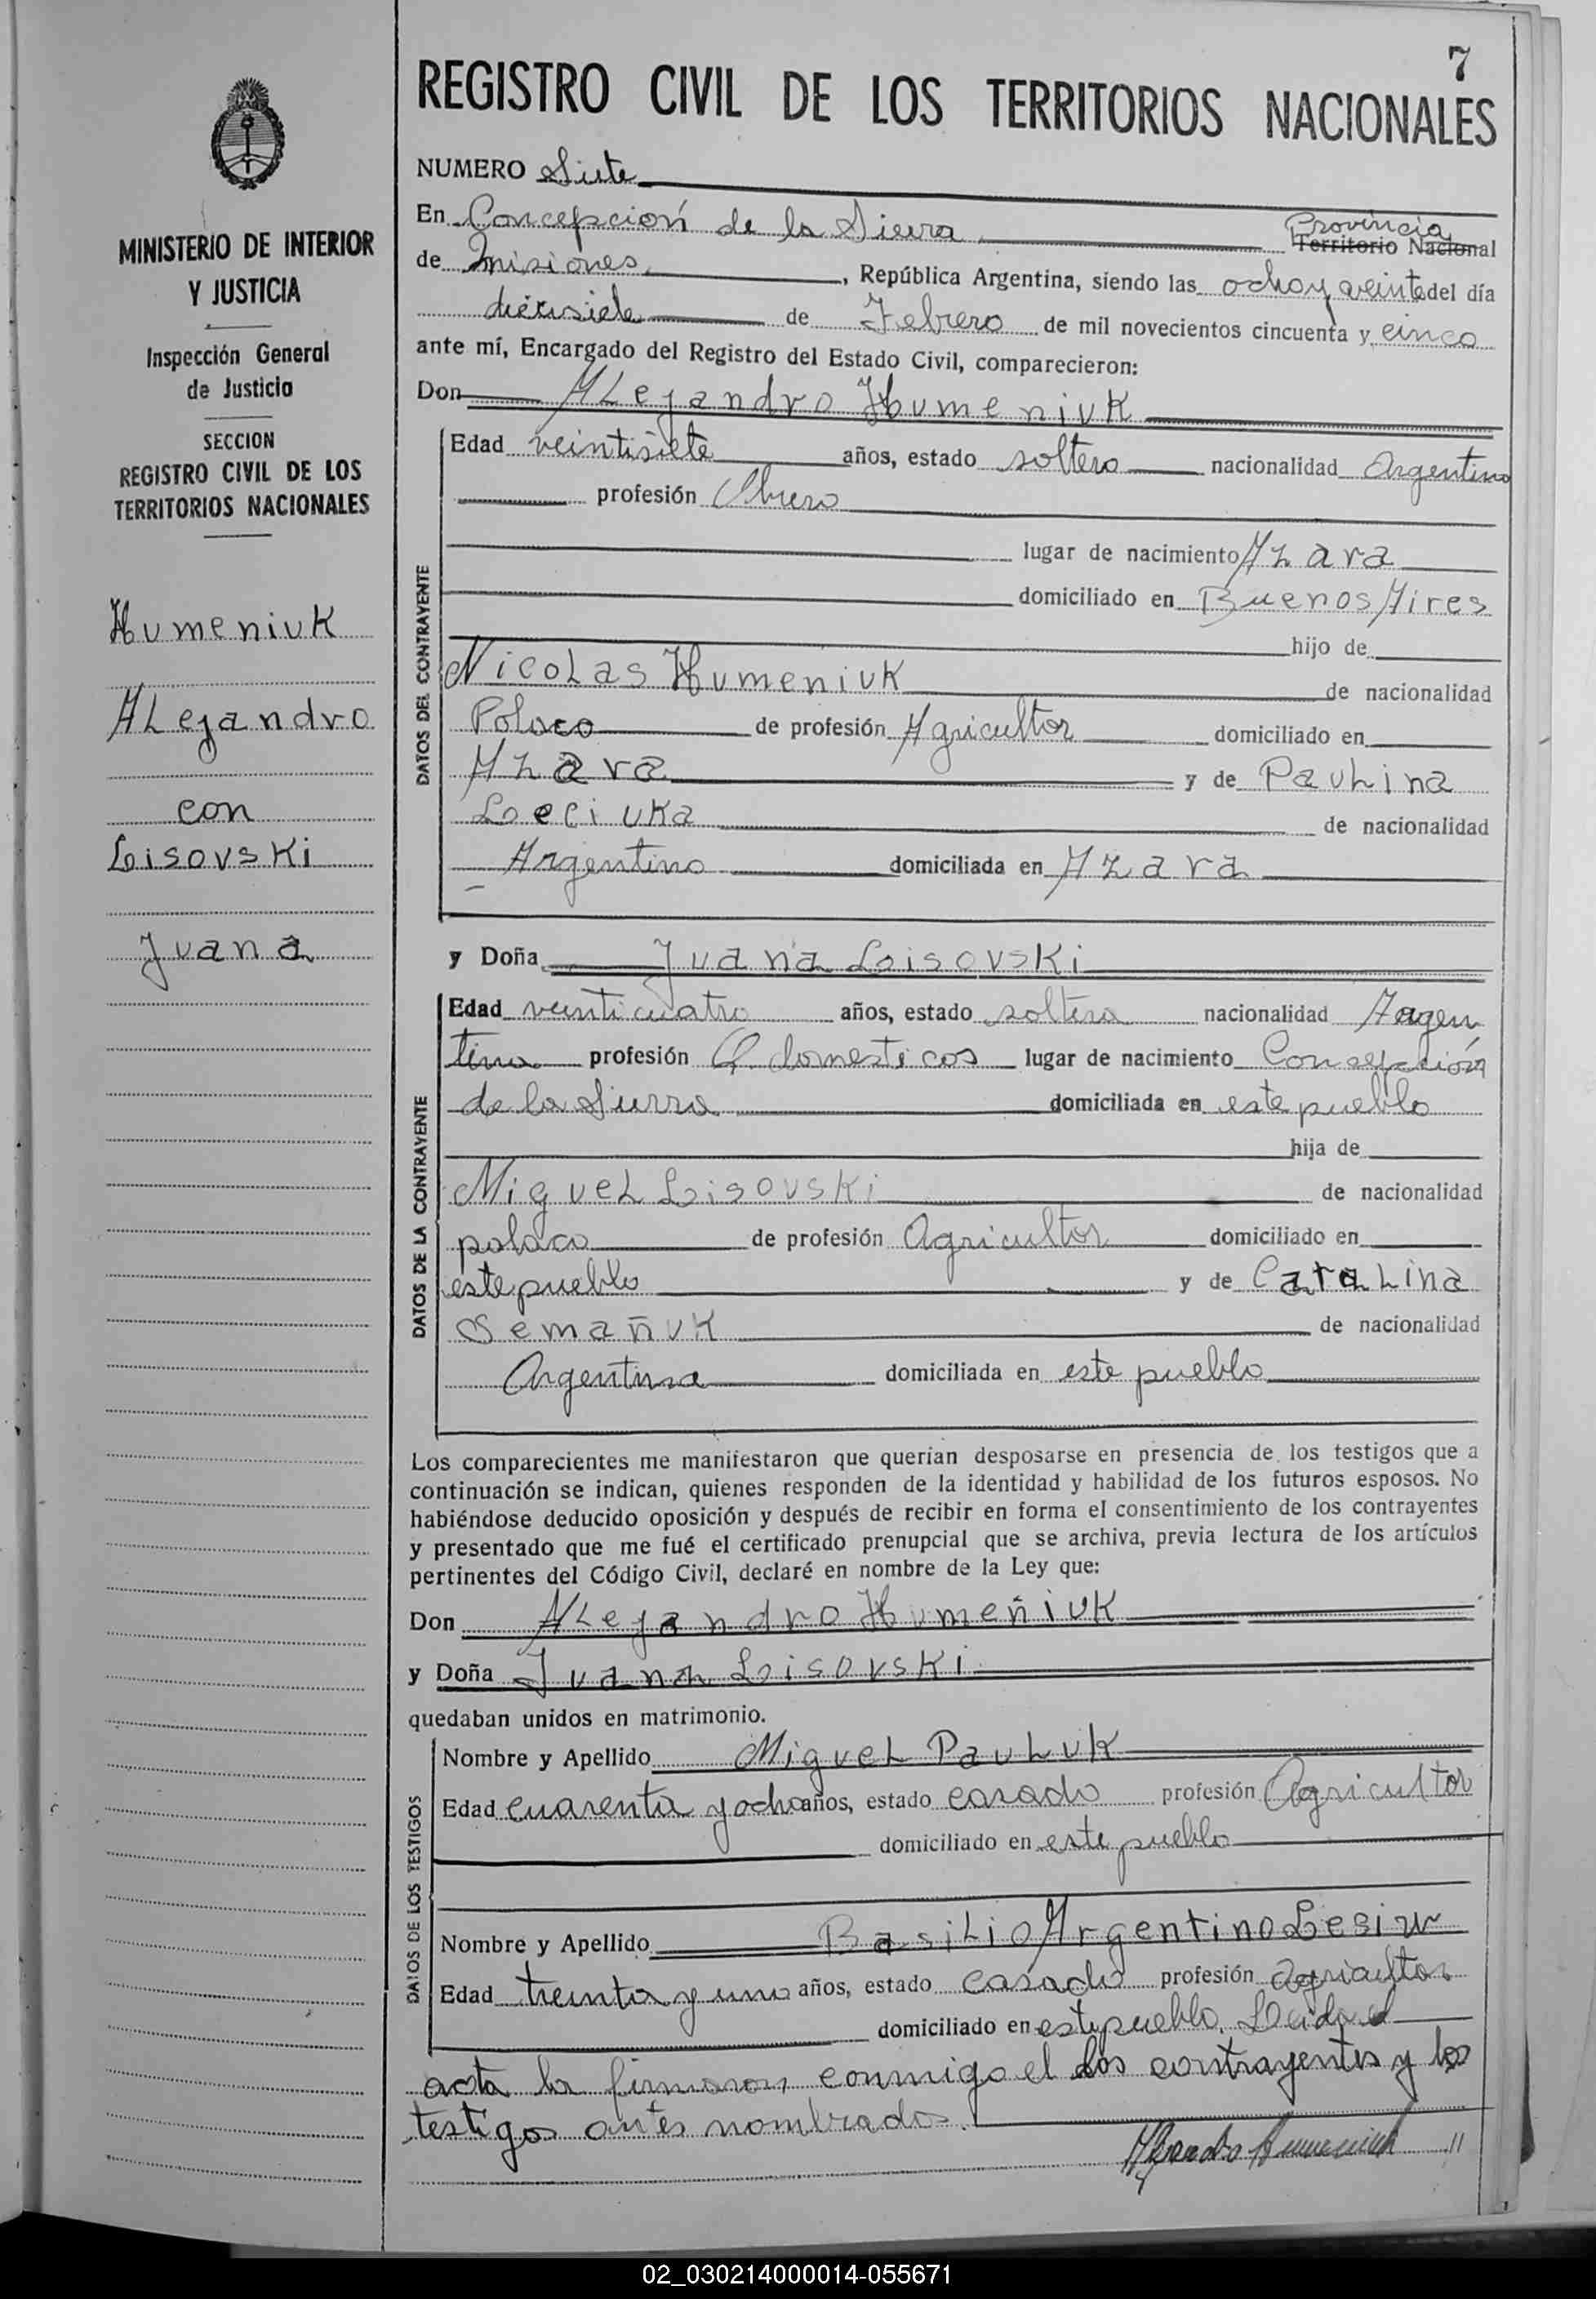 7
REGISTRO CIVIL DE LOS TERRITORIOS NACIONALES
MINISTERIO DE INTERIOR
Y JUSTICIA
Inspección General
de Justicia
SECCION
REGISTRO CIVIL DE LOS
TERRITORIOS NACIONALES
Humeniuk
Alejandro
con
Lisovski
Juana
NUMERO Siete
En Concepción de la Sierra Provincia Territorio Nacional
de Misiones, República Argentina, siendo las ocho y veinte del día
diecisiete de Febrero de mil novecientos cincuenta y cinco
ante mí, Encargado del Registro del Estado Civil, comparecieron:
Don Alejandro Humeniuk
DATOS DEL CONTRAYENTE
Edad veintisiete años, estado soltero nacionalidad Argentino
profesión Obrero
lugar de nacimiento Azara
domiciliado en Buenos Aires
hijo de
Nicolas Humeniuk de nacionalidad
Polaco de profesión Agricultor domiciliado en
Azara y de Paulina
Leciuka de nacionalidad
Argentino domiciliada en Azara
y Doña Juana Lisovski
DATOS DE LA CONTRAYENTE
Edad veinticuatro años, estado soltera nacionalidad Argen
tina profesión Q. domesticos lugar de nacimiento Concepción
de la Sierra domiciliada en este pueblo
hija de
Miguel Lisovski de nacionalidad
polaco de profesión Agricultor domiciliado en
este pueblo y de Catalina
Semañuk de nacionalidad
Argentina domiciliada en este pueblo
Los comparecientes me manifestaron que querían desposarse en presencia de los testigos que a
continuación se indican, quienes responden de la identidad y habilidad de los futuros esposos. No
habiéndose deducido oposición y después de recibir en forma el consentimiento de los contrayentes
y presentado que me fué el certificado prenupcial que se archiva, previa lectura de los artículos
pertinentes del Código Civil, declaré en nombre de la Ley que:
Don Alejandro Humeñiuk
y Doña Juana Lisovski
quedaban unidos en matrimonio.
DATOS DE LOS TESTIGOS
Nombre y Apellido Miguel Pauluk
Edad cuarenta y ocho años, estado casado profesión Agricultor
domiciliado en este pueblo
Nombre y Apellido Basilio Argentino Lesiw
Edad treinta y uno años, estado casado profesión agricultor
domiciliado en este pueblo. Leida el
acta la firmaron conmigo el los contrayentes y los
testigos antes nombrados.
Alejandro Humeniuk //
02_030214000014-055671